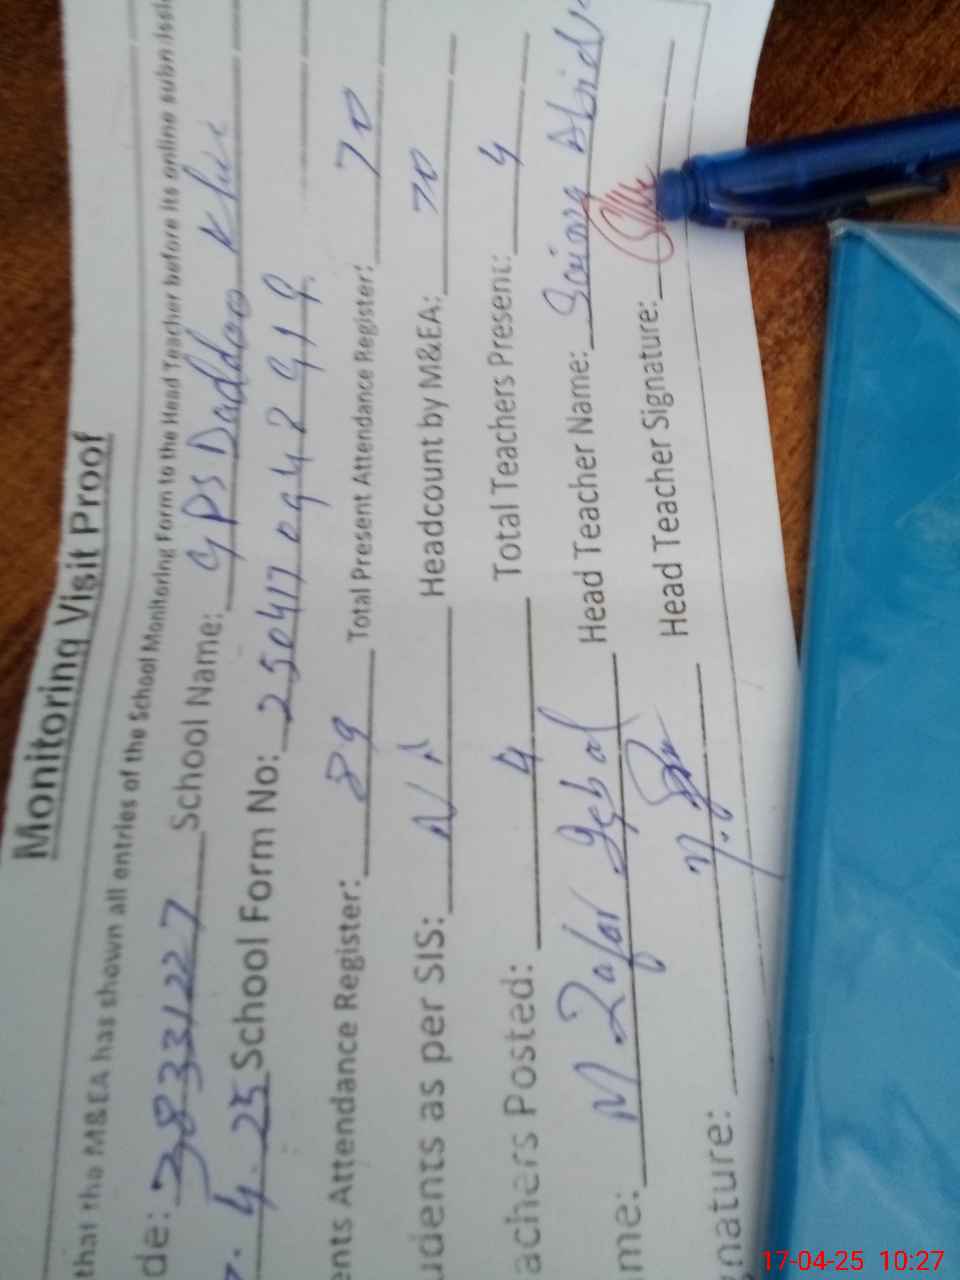 Monitoring Visit Proof
that the M&EA has shown all entries of the School Monitoring Form to the Head Teacher before its online
de: 38331227 School Name: GPS Daddoo
4.25 School Form No: 2504170942919
ents Attendance Register: 89 Total Present Attendance Register: 70
udents as per SIS: N/A Headcount by M&EA: 70
achers Posted: 4 Total Teachers Present: 4
me: M Zafar Iqbal Head Teacher Name:
gnature: Head Teacher Signature:
17-04-25 10:27